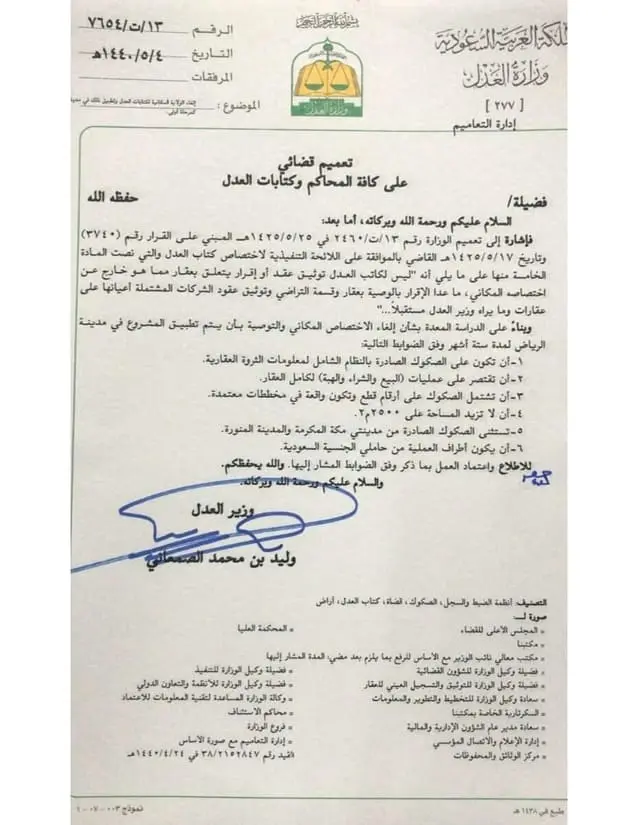 المملكة العربية السعودية
وزارة العدل
[ ٢٧٧ ]
إدارة التعاميم
وزارة العدل
الرقم ١٣/ت/٧٦٥٤
التاريخ ١٤٤٠/٥/٤هـ
المرفقات
الموضوع : إلغاء الولاية المكانية لكتابات العدل وتطبيق ذلك في مدينة
كمرحلة أولى.
تعميم قضائي
على كافة المحاكم وكتابات العدل
فضيلة/ حفظه الله
السلام عليكم ورحمة الله وبركاته، أما بعد:
فإشارة إلى تعميم الوزارة رقم ١٣/ت/٢٤٦٠ في ١٤٢٥/٥/٢٥هـ المبني على القرار رقم (٣٧٤٠)
وتاريخ ١٤٢٥/٥/١٧هـ القاضي بالموافقة على اللائحة التنفيذية لاختصاص كتاب العدل والتي نصت المادة
الخامسة منها على ما يلي أنه "ليس لكاتب العدل توثيق عقد أو إقرار يتعلق بعقار مما هو خارج عن
اختصاصه المكاني، ما عدا الإقرار بالوصية بعقار وقسمة التراضي وتوثيق عقود الشركات المشتملة أعيانها على
عقارات وما يراه وزير العدل مستقبلاً..."
وبناءً على الدراسة المعدة بشأن إلغاء الاختصاص المكاني والتوصية بأن يتم تطبيق المشروع في مدينة
الرياض لمدة ستة أشهر وفق الضوابط التالية:
١-أن تكون على الصكوك الصادرة بالنظام الشامل لمعلومات الثروة العقارية.
٢-أن تقتصر على عمليات (البيع والشراء والهبة) لكامل العقار.
٣-أن تشتمل الصكوك على أرقام قطع وتكون واقعة في مخططات معتمدة.
٤-أن لا تزيد المساحة على ٢٥٠٠م٢.
٥-تستثنى الصكوك الصادرة من مدينتي مكة المكرمة والمدينة المنورة.
٦-أن يكون أطراف العملية من حاملي الجنسية السعودية.
للاطلاع واعتماد العمل بما ذكر وفق الضوابط المشار إليها. والله يحفظكم.
والسلام عليكم ورحمة الله وبركاته.
وزير العدل
وليد بن محمد الصمعاني
التصنيف: أنظمة الضبط والسجل، الصكوك، القضاة، كتاب العدل، أراض
صورة لـ:
* المجلس الأعلى للقضاء
* المحكمة العليا
* مكتبنا
* مكتب معالي نائب الوزير مع الأساس للرفع بما يلزم بعد مضي المدة المشار إليها
* فضيلة وكيل الوزارة للشؤون القضائية
* فضيلة وكيل الوزارة للتنفيذ
* فضيلة وكيل الوزارة للتوثيق والتسجيل العيني للعقار
* فضيلة وكيل الوزارة للأنظمة والتعاون الدولي
* سعادة وكيل الوزارة للتخطيط والتطوير والمعلومات
* وكالة الوزارة المساعدة لتقنية المعلومات للاعتماد
* السكرتارية الخاصة بمكتبنا
* محاكم الاستئناف
* سعادة مدير عام الشؤون الإدارية والمالية
* فروع الوزارة
* إدارة الإعلام والاتصال المؤسسي
* إدارة التعاميم مع صورة الأساس
* مركز الوثائق والمحفوظات
القيد رقم ٣٨/٢١٥٢٨٤٧ في ١٤٤٠/٤/٢٤هـ
طبع في ١٤٣٨ هـ
نموذج ٠٠٣-٠٧-٠١